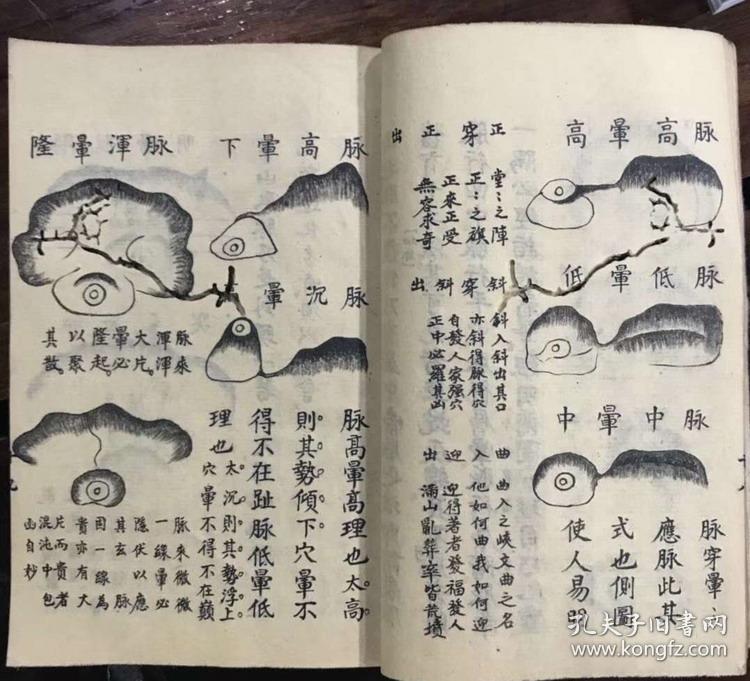 脉高暈高
脉低暈低
脉中暈中
脉穿暈之
應脉此其
式也側圖
使人易
正穿正出
堂々之陣
正々之旗
正來正受
無容求奇
斜穿斜出
斜入斜出其口
亦斜得脉得穴
自發人家强穴
正中必羅其凶
曲入迎出
曲入之峽文曲之名
他如何曲我如何迎
迎得著者發福發人
滿山亂葬率皆荒墳
脉高暈下
脉沉暈
脉渾暈隆
脉高暈高理也太高
則其勢傾下穴暈不
得不在趾脉低暈低
理也太沉則其勢浮上
穴暈不得不在巔
脉來渾渾
大片暈必
隆起以聚
其散
脉來微微
一線暈必
隱伏以應
其玄脉
因一線為
貴亦有大
片而貴者
混沌中包
凶自杪
孔夫子旧书网
www.kongfz.com